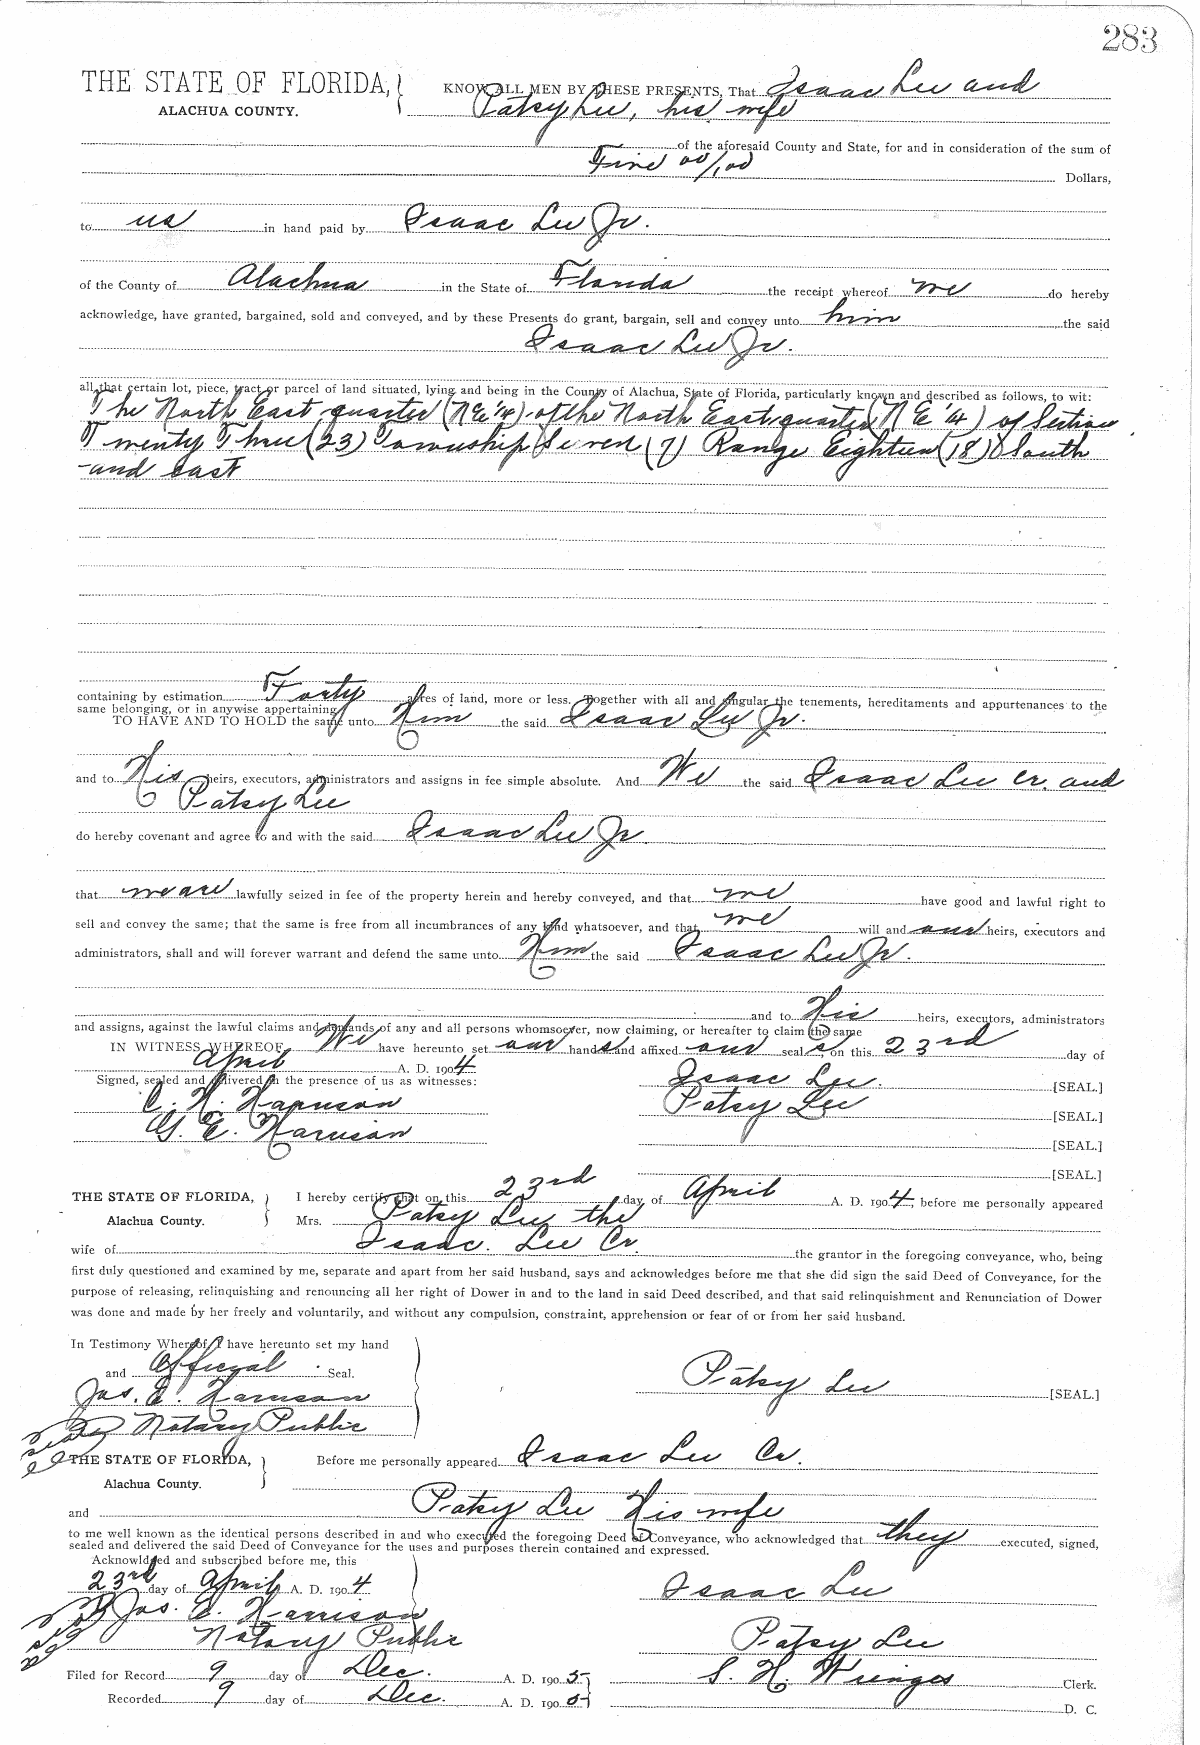 283
THE STATE OF FLORIDA, KNOW ALL MEN BY THESE PRESENTS, That Isaac Lee and
ALACHUA COUNTY. Patsy Lee, his wife
of the aforesaid County and State, for and in consideration of the sum of
Five 00/100 Dollars,
to us in hand paid by Isaac Lee Jr.
of the County of Alachua in the State of Florida the receipt whereof we do hereby
acknowledge, have granted, bargained, sold and conveyed, and by these Presents do grant, bargain, sell and convey unto him the said
Isaac Lee Jr.
all that certain lot, piece, tract or parcel of land situated, lying and being in the County of Alachua, State of Florida, particularly known and described as follows, to wit:
The North East quarter (N E 1/4) of the North East quarter (N E 1/4) of Section
Twenty Three (23) Township Seven (7) Range Eighteen (18) South
and east
containing by estimation Forty acres of land, more or less. Together with all and singular the tenements, hereditaments and appurtenances to the
same belonging, or in anywise appertaining
TO HAVE AND TO HOLD the same unto Him the said Isaac Lee Jr.
and to His heirs, executors, administrators and assigns in fee simple absolute. And We the said Isaac Lee Cr. and
Patsy Lee
do hereby covenant and agree to and with the said Isaac Lee Jr
that we are lawfully seized in fee of the property herein and hereby conveyed, and that we have good and lawful right to
sell and convey the same; that the same is free from all incumbrances of any kind whatsoever, and that we will and our heirs, executors and
administrators, shall and will forever warrant and defend the same unto Him the said Isaac Lee Jr.
and to His heirs, executors, administrators
and assigns, against the lawful claims and demands of any and all persons whomsoever, now claiming, or hereafter to claim the same
IN WITNESS WHEREOF We have hereunto set our hands and affixed our seal s on this 23rd day of
April A. D. 1904
Signed, sealed and delivered in the presence of us as witnesses: Isaac Lee. [SEAL.]
C. H. Harrison Patsy Lee [SEAL.]
G. E. Harrison [SEAL.]
[SEAL.]
THE STATE OF FLORIDA, I hereby certify that on this 23rd day of April A. D. 1904, before me personally appeared
Alachua County. Mrs. Patsy Lee the
wife of Isaac. Lee Cr. the grantor in the foregoing conveyance, who, being
first duly questioned and examined by me, separate and apart from her said husband, says and acknowledges before me that she did sign the said Deed of Conveyance, for the
purpose of releasing, relinquishing and renouncing all her right of Dower in and to the land in said Deed described, and that said relinquishment and Renunciation of Dower
was done and made by her freely and voluntarily, and without any compulsion, constraint, apprehension or fear of or from her said husband.
In Testimony Whereof I have hereunto set my hand
and Official Seal. Patsy Lee [SEAL.]
Jas. E. Harrison
Notary Public
THE STATE OF FLORIDA, Before me personally appeared Isaac Lee Cr.
Alachua County.
and Patsy Lee His wife
to me well known as the identical persons described in and who executed the foregoing Deed of Conveyance, who acknowledged that they executed, signed,
sealed and delivered the said Deed of Conveyance for the uses and purposes therein contained and expressed.
Acknowldged and subscribed before me, this
23rd day of April A. D. 1904 Isaac Lee
Jas. E. Harrison
Notary Public Patsy Lee
Filed for Record 9 day of Dec. A. D. 1905 S. H. Wienges Clerk.
Recorded 9 day of Dec. A. D. 1905 D. C.